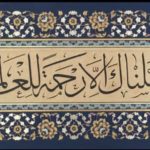 سلناك إلا رحمة للعالم